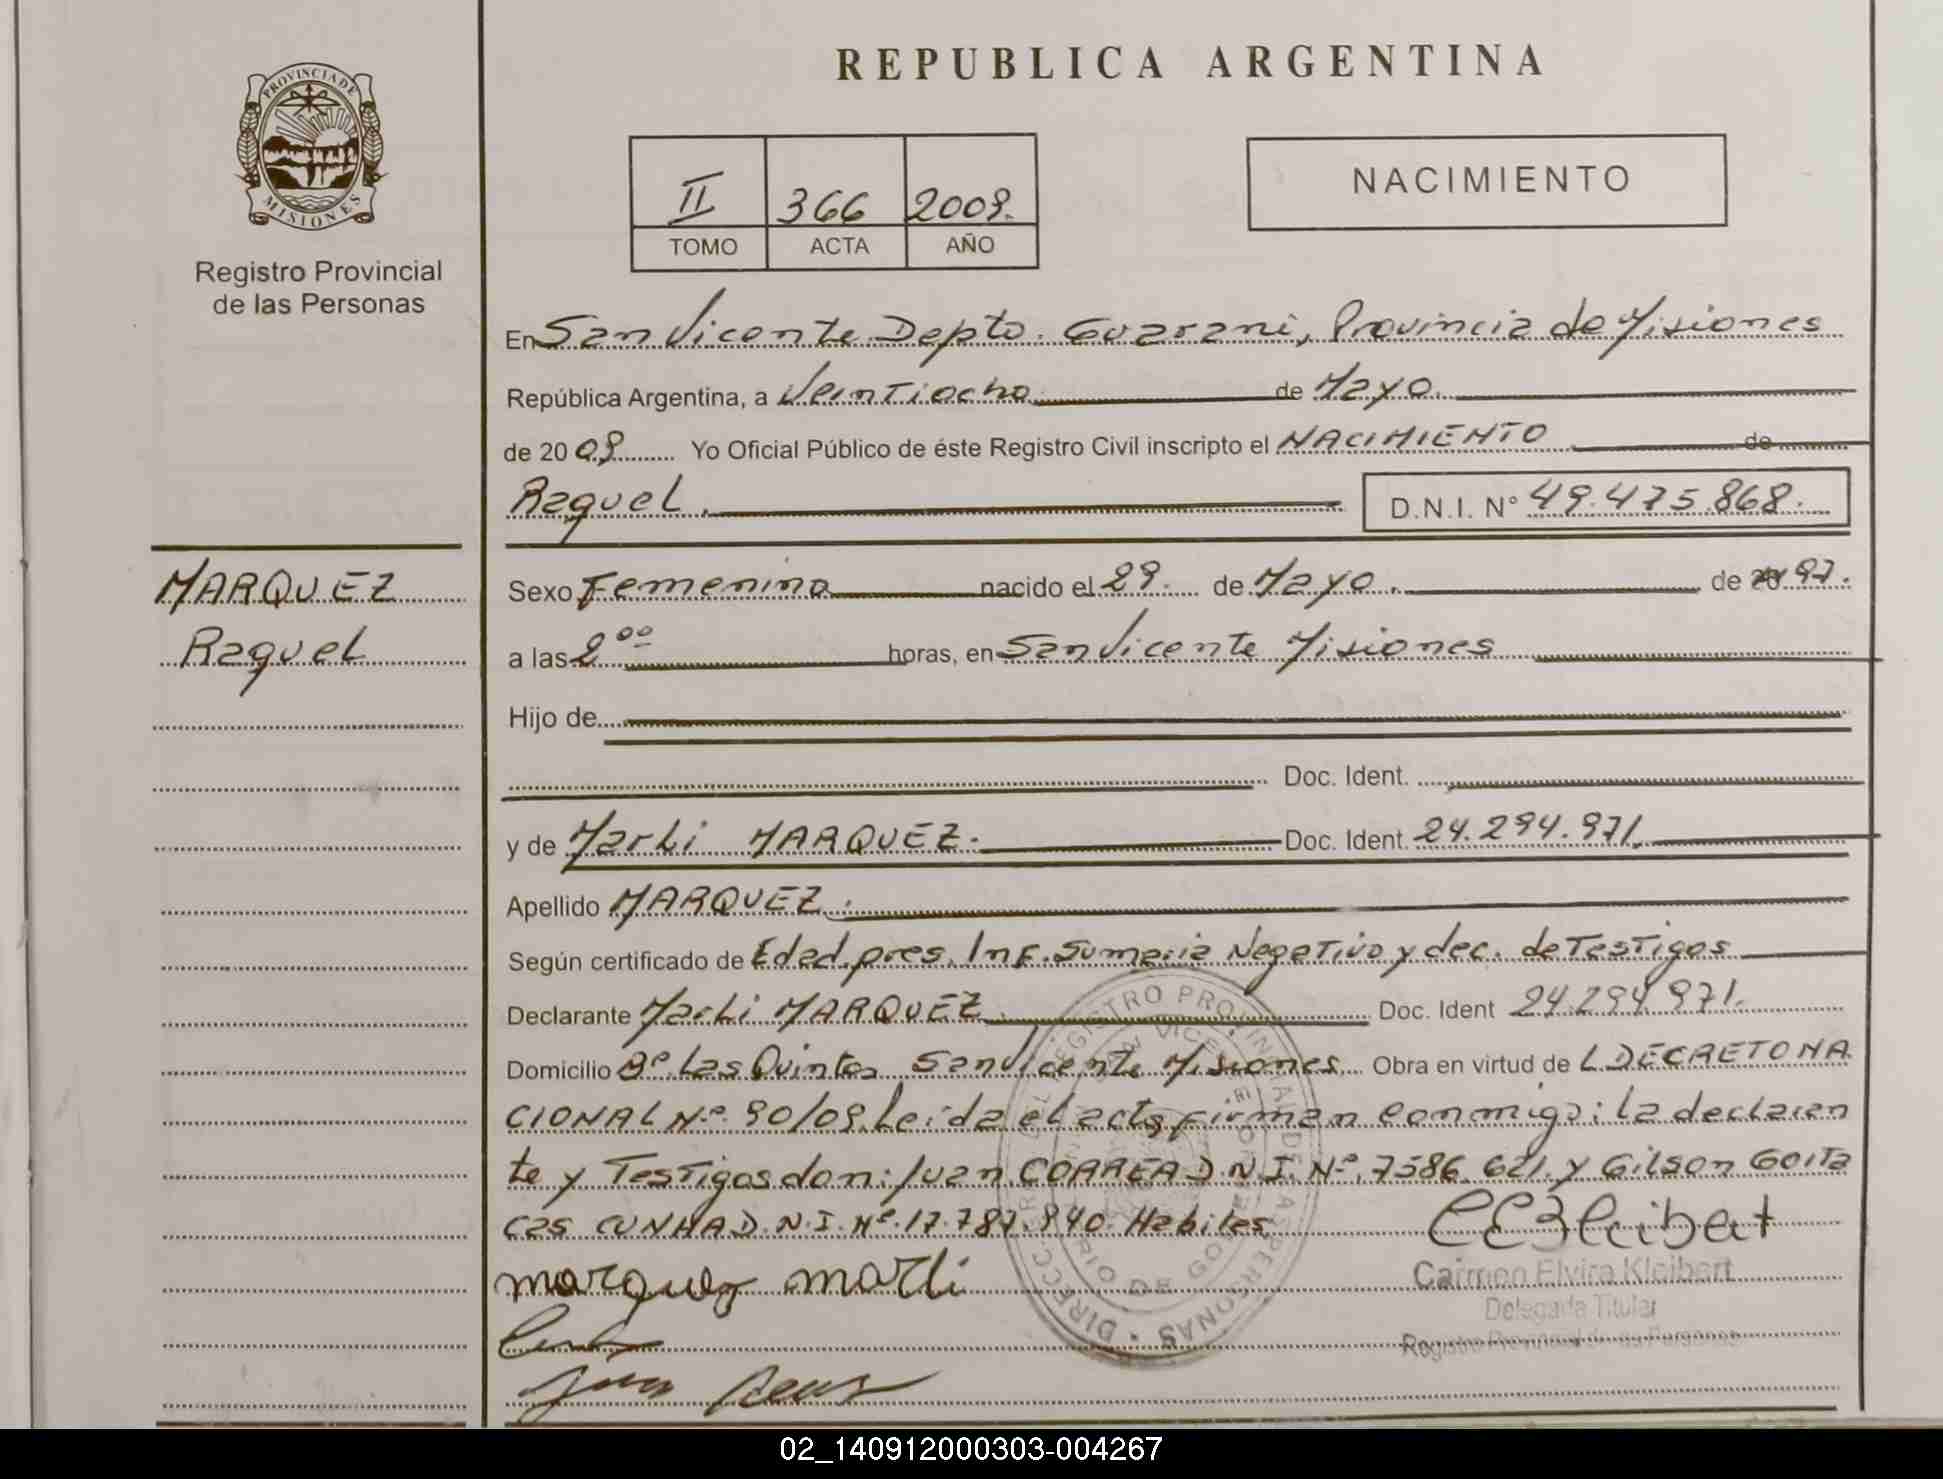 REPUBLICA ARGENTINA
PROVINCIA DE
MISIONES
Registro Provincial
de las Personas
II 366 2009.
TOMO ACTA AÑO
NACIMIENTO
En San Vicente Depto. Guarani, Provincia de Misiones
República Argentina, a Veintiocho de Mayo.
de 2009 Yo Oficial Público de éste Registro Civil inscripto el NACIMIENTO de
Raquel. D.N.I. N° 49.475.868.
MARQUEZ
Raquel
Sexo Femenino nacido el 29. de Mayo. de 97.
a las 2 00 horas, en San Vicente Misiones
Hijo de
Doc. Ident.
y de Marli MARQUEZ. Doc. Ident. 24.294.971.
Apellido MARQUEZ.
Según certificado de Edad pres. Inf. Sumaria Negativo y dec. de Testigos
Declarante Marli MARQUEZ Doc. Ident 24.294.971.
Domicilio Bº Las Quintas San Vicente Misiones Obra en virtud de L DECRETO NA
CIONAL Nº 90/09. Leida el acta firman conmigo: la declaran
te y Testigos don: Juan CORREA D.N.I. Nº. 7586.621. y Gilson Goita
cas CUNHA D.N.I. Nº. 17.787.940. Habiles
marquez marli
Carmen Elvira Kleibert
Delegada Titular
Registro Provincial de las Personas
02_140912000303-004267